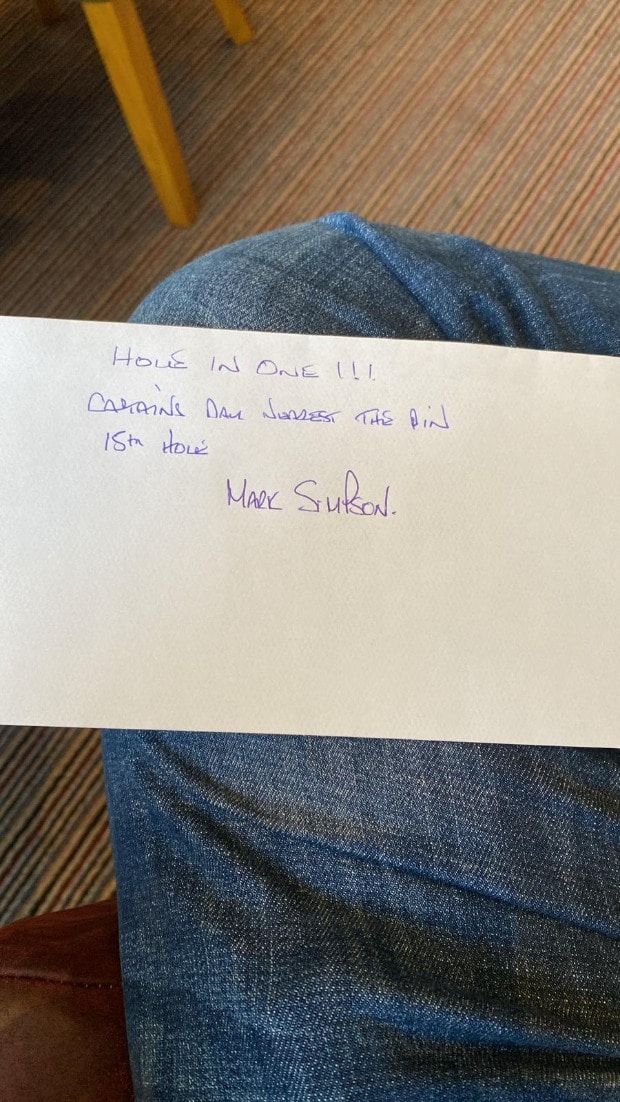 HOLE IN ONE !!!
CAPTAINS DAY NEAREST THE PIN
15th HOLE
MARK SIMPSON.